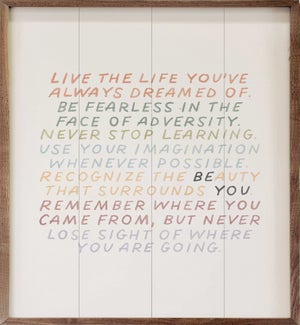 LIVE THE LIFE YOU'VE
ALWAYS DREAMED OF.
BE FEARLESS IN THE
FACE OF ADVERSITY.
NEVER STOP LEARNING.
USE YOUR IMAGINATION
WHENEVER POSSIBLE.
RECOGNIZE THE BEAUTY
THAT SURROUNDS YOU
REMEMBER WHERE YOU
CAME FROM, BUT NEVER
LOSE SIGHT OF WHERE
YOU ARE GOING.